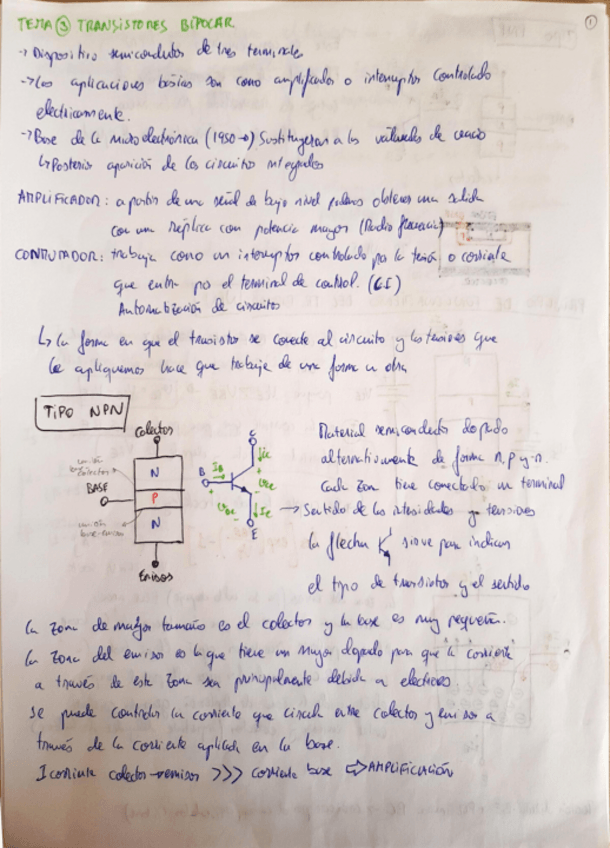 TEMA ③ TRANSISTORES BIPOLAR
①
→ Dispositivo semiconductor de tres terminales
→ Las aplicaciones basicas son como amplificador o interruptor controlado
electricamente.
→ Base de la microelectrónica (1950→) Sustituyeron a las válvulas de vacio
↳ Posterior aparición de los circuitos integrados
AMPLIFICADOR: a partir de una señal de bajo nivel podemos obtener una salida
con una réplica con potencia mayor (Radio frecuencia)
CONMUTADOR: trabaja como un interruptor controlado por la tensión o corriente
que entra por el terminal de control.
Automatización de circuitos
↳ La forma en que el transistor se conecte al circuito y las tensiones que
le apliquemos hace que trabaje de una forma u otra
TIPO NPN
Colector
N
unión
base-colector
BASE
P
N
unión
base-emisor
Emisor
C
B
E
Material semiconductor dopado
alternativamente de forma n, p y n.
Cada zona tiene conectado un terminal
→ Sentido de las intensidades y tensiones
La flecha sirve para indicar
el tipo de transistor y el sentido
La zona de mayor tamaño es el colector y la base es muy pequeña.
La zona del emisor es la que tiene un mayor dopado para que la corriente
a través de esta zona sea principalmente debida a electrones.
Se puede controlar la corriente que circula entre colector y emisor a
través de la corriente aplicada en la base.
I corriente colector-emisor >>> corriente base ⇨ AMPLIFICACIÓN